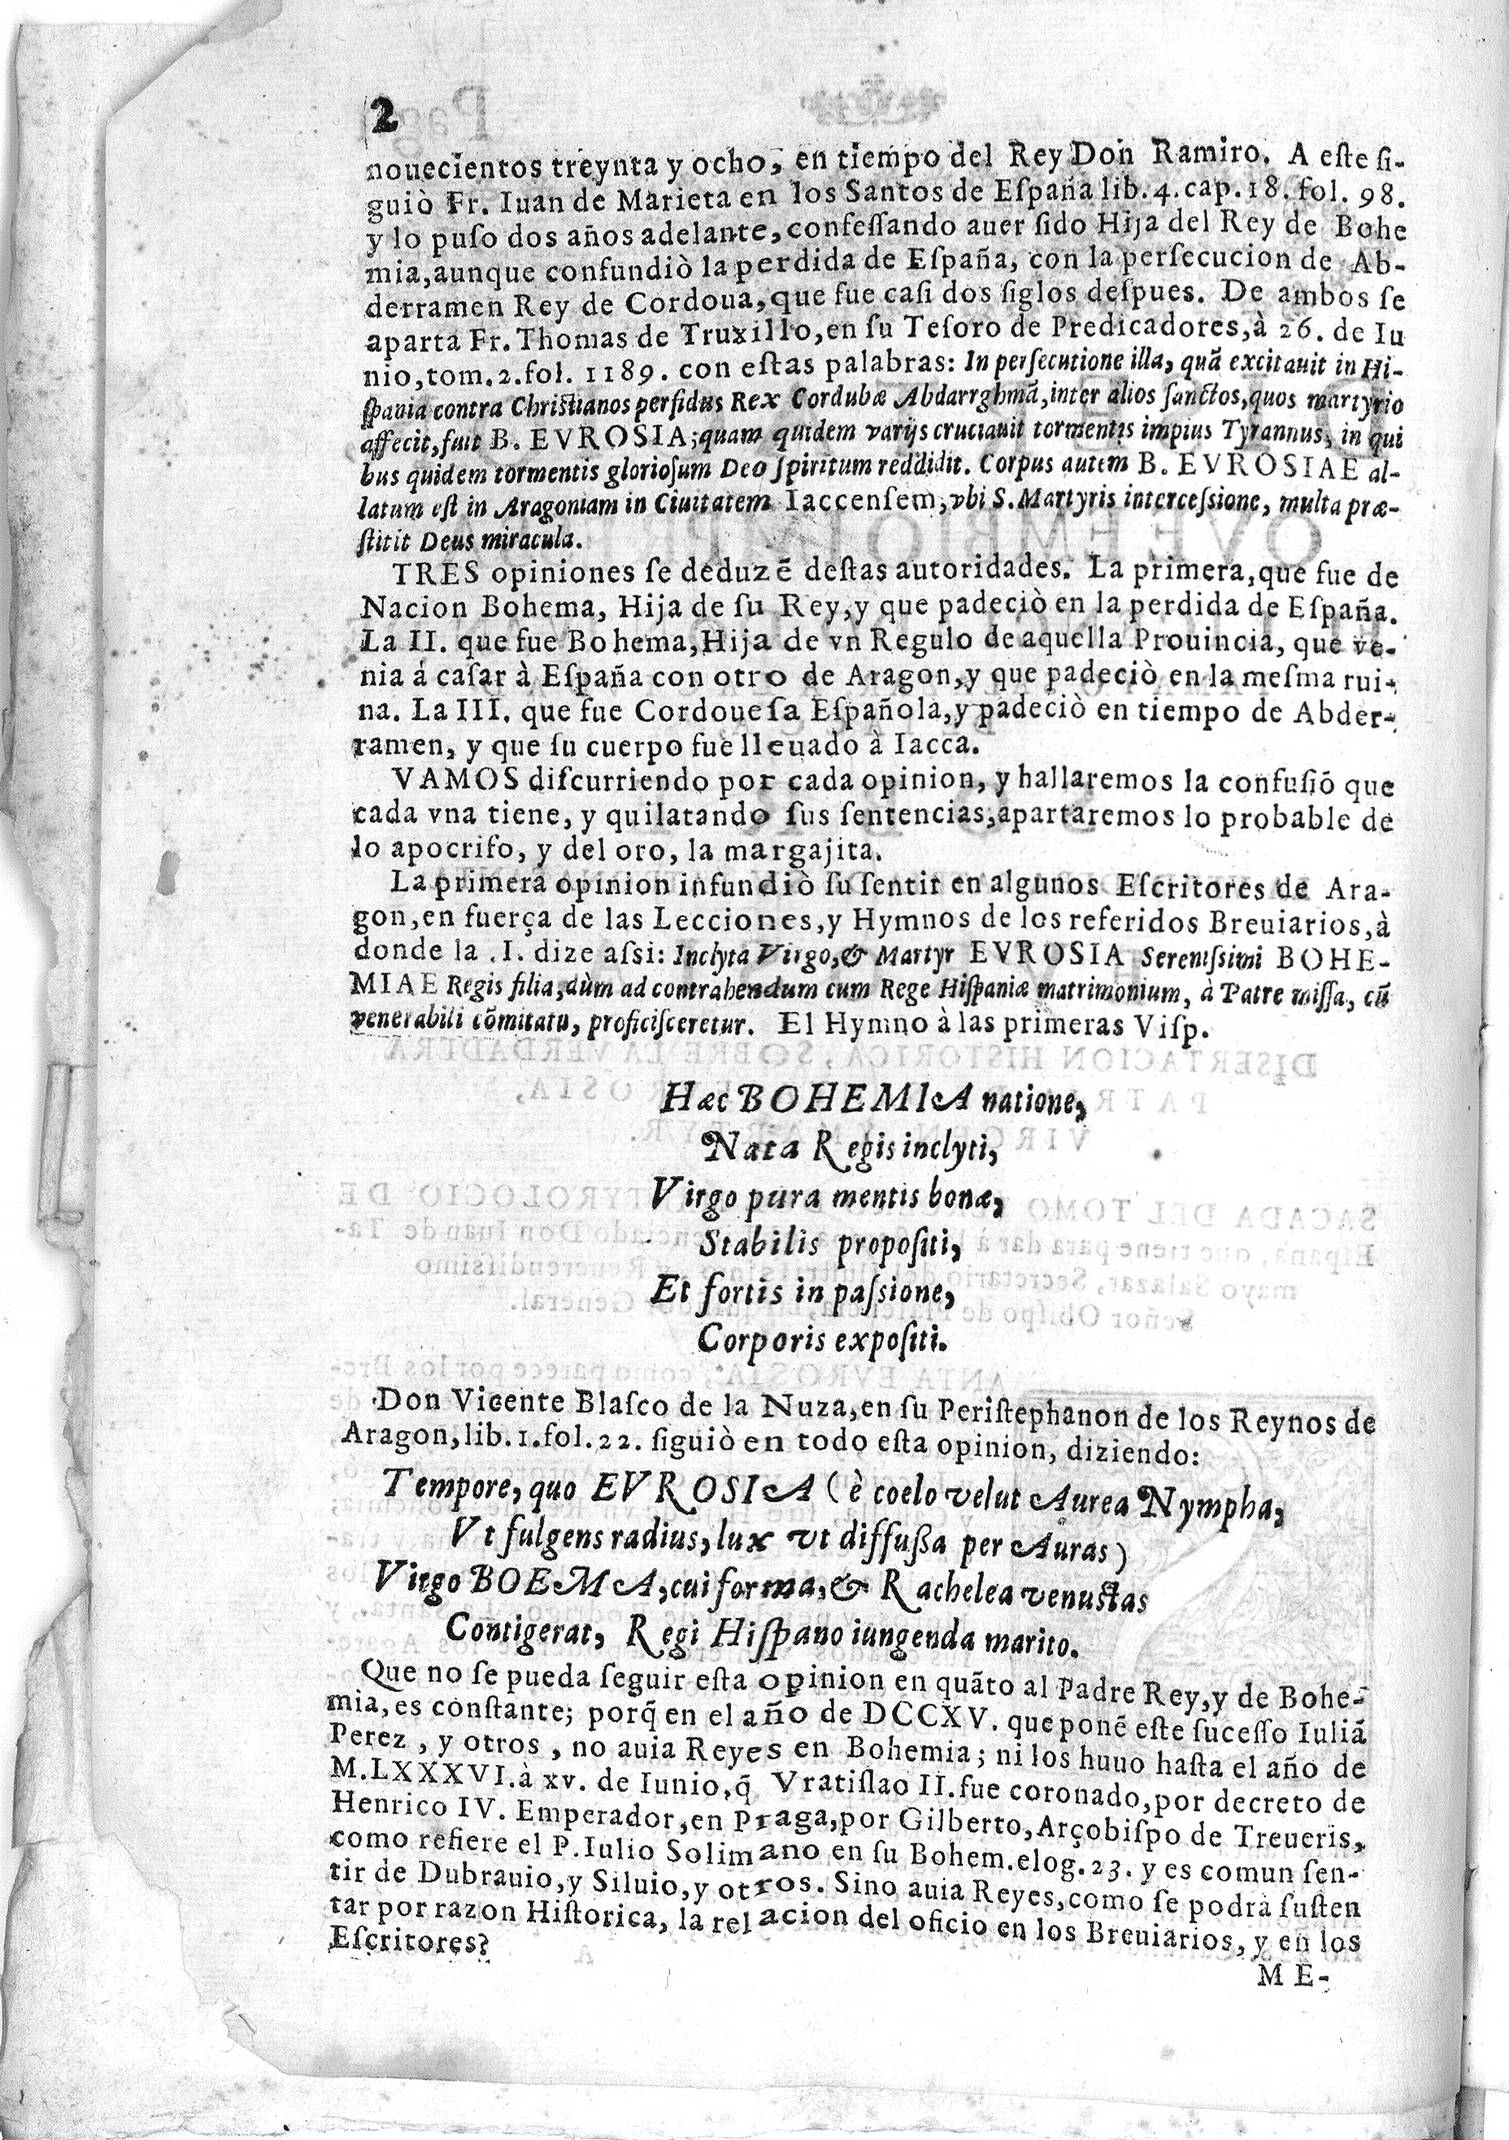 2
nouecientos treynta y ocho, en tiempo del Rey Don Ramiro. A este si-
guiò Fr. Iuan de Marieta en los Santos de España lib. 4. cap. 18. fol. 98.
y lo puso dos años adelante, confessando auer sido Hija del Rey de Bohe
mia, aunque confundiò la perdida de España, con la persecucion de Ab-
derramen Rey de Cordoua, que fue casi dos siglos despues. De ambos se
aparta Fr. Thomas de Truxillo, en su Tesoro de Predicadores, à 26. de Iu
nio, tom. 2. fol. 1189. con estas palabras: In persecutione illa, quā excitauit in Hi-
spania contra Christianos perfidus Rex Cordubæ Abdarrghmā, inter alios sanctos, quos martyrio
affecit, fuit B. EVROSIA; quam quidem varijs cruciauit tormentis impius Tyrannus, in qui
bus quidem tormentis gloriosum Deo spiritum reddidit. Corpus autem B. EVROSIAE al-
latum est in Aragoniam in Ciuitatem Iaccensem, vbi S. Martyris intercessione, multa præ-
stitit Deus miracula.
TRES opiniones se deduzē destas autoridades. La primera, que fue de
Nacion Bohema, Hija de su Rey, y que padeciò en la perdida de España.
La II. que fue Bohema, Hija de vn Regulo de aquella Prouincia, que ve-
nia á casar à España con otro de Aragon, y que padeciò en la mesma rui-
na. La III. que fue Cordouesa Española, y padeciò en tiempo de Abder-
ramen, y que su cuerpo fue lleuado à Iacca.
VAMOS discurriendo por cada opinion, y hallaremos la confusiō que
cada vna tiene, y quilatando sus sentencias, apartaremos lo probable de
lo apocrifo, y del oro, la margajita.
La primera opinion infundiò su sentir en algunos Escritores de Ara-
gon, en fuerça de las Lecciones, y Hymnos de los referidos Breuiarios, à
donde la .I. dize assi: Inclyta Virgo, & Martyr EVROSIA Serenissimi BOHE-
MIAE Regis filia, dùm ad contrahendum cum Rege Hispaniæ matrimonium, à Patre missa, cū
venerabili cōmitatu, proficisceretur. El Hymno à las primeras Visp.
Hæc BOHEMIA natione,
Nata Regis inclyti,
Virgo pura mentis bonæ,
Stabilis propositi,
Et fortis in passione,
Corporis expositi.
Don Vicente Blasco de la Nuza, en su Peristephanon de los Reynos de
Aragon, lib. 1. fol. 22. siguiò en todo esta opinion, diziendo:
Tempore, quo EVROSIA (è coelo velut Aurea Nympha,
Vt fulgens radius, lux vt diffußa per Auras)
Virgo BOEMA, cui forma, & Rachelea venustas
Contigerat, Regi Hispano iungenda marito.
Que no se pueda seguir esta opinion en quāto al Padre Rey, y de Bohe-
mia, es constante; porq̄ en el año de DCCXV. que ponē este sucesso Iuliā
Perez, y otros, no auia Reyes en Bohemia; ni los huuo hasta el año de
M.LXXXVI. à xv. de Iunio, q̄ Vratislao II. fue coronado, por decreto de
Henrico IV. Emperador, en Praga, por Gilberto, Arçobispo de Treueris,
como refiere el P. Iulio Solimano en su Bohem. elog. 23. y es comun sen-
tir de Dubrauio, y Siluio, y otros. Sino auia Reyes, como se podrà susten
tar por razon Historica, la relacion del oficio en los Breuiarios, y en los
Escritores?
ME-